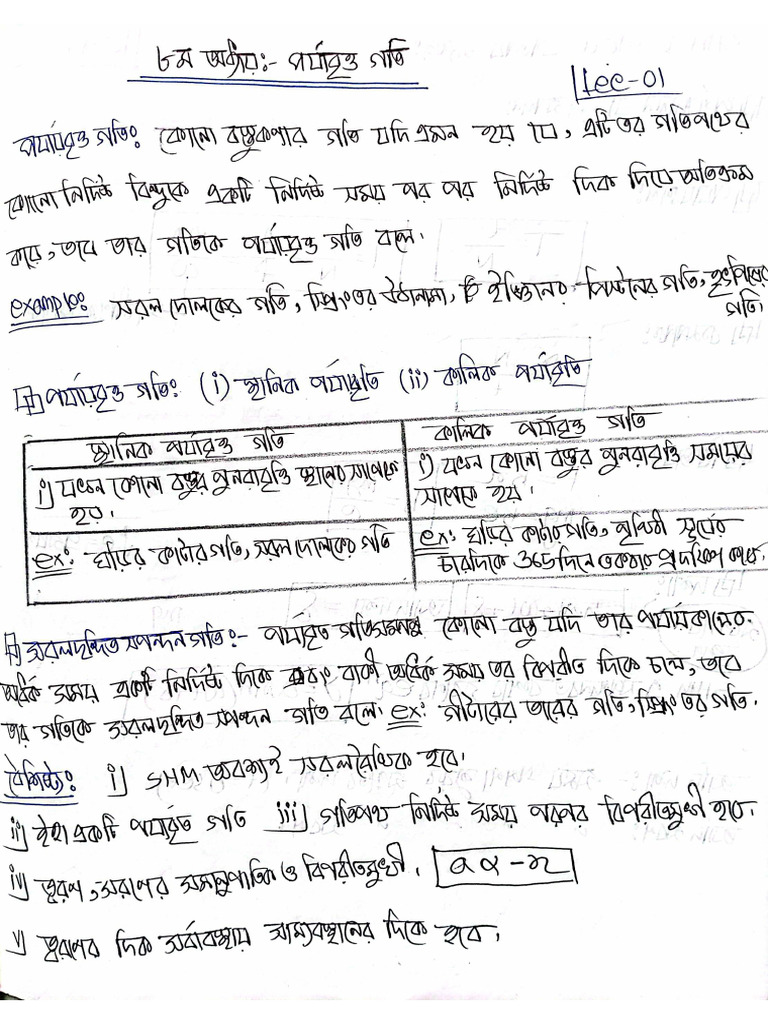 ৮ম অধ্যায়:- পর্যাবৃত্ত গতি
Lec-01
পর্যাবৃত্ত গতি: কোনো বস্তুকণার গতি যদি এমন হয় যে, এটি তর গতিপথের
কোনো নির্দিষ্ট বিন্দুকে একটি নির্দিষ্ট সময় পর পর নির্দিষ্ট দিক দিয়ে অতিক্রম
করে, তবে তার গতিকে পর্যাবৃত্ত গতি বলে।
example: সরল দোলকের গতি, স্প্রিং তর উঠানামা, ইঞ্জিনের পিস্টনের গতি, হৃৎপিন্ডের
গতি।
পর্যাবৃত্ত গতি: (i) স্থানিক পর্যাবৃতি (ii) কালিক পর্যাবৃতি
স্থানিক পর্যাবৃত্ত গতি
কালিক পর্যাবৃত্ত গতি
i) যখন কোনো বস্তুর পুনরাবৃত্তি স্থানের সাপেক্ষে
হয়।
i) যখন কোনো বস্তুর পুনরাবৃত্তি সময়ের
সাপেক্ষে হয়।
ex: ঘড়ির কাটার গতি, সরল দোলকের গতি
ex: ঘড়ির কাটার গতি, পৃথিবী সূর্যের
চারদিকে 365 দিনে একবার প্রদক্ষিণ করে।
সরলছন্দিত স্পন্দন গতি:- পর্যাবৃত গতিসম্পন্ন কোনো বস্তু যদি তার পর্যায়কালের
অর্ধেক সময় একটি নির্দিষ্ট দিকে এবং বাকী অর্ধেক সময় তর বিপরীত দিকে চলে, তবে
তার গতিকে সরলছন্দিত স্পন্দন গতি বলে। ex: গীটারের তারের গতি, স্প্রিং তর গতি।
বৈশিষ্ট্য: i) SHM অবশ্যই সরলরৈখিক হবে।
ii) ইহা একটি পর্যাবৃত গতি iii) গতিপথ নির্দিষ্ট সময় পরপর বিপরীতমুখী হবে।
iv) ত্বরণ, সরণের সমানুপাতিক ও বিপরীতমুখী। a α - x
v) ত্বরণের দিক সর্বাবস্থায় সাম্যবস্থানের দিকে হবে।